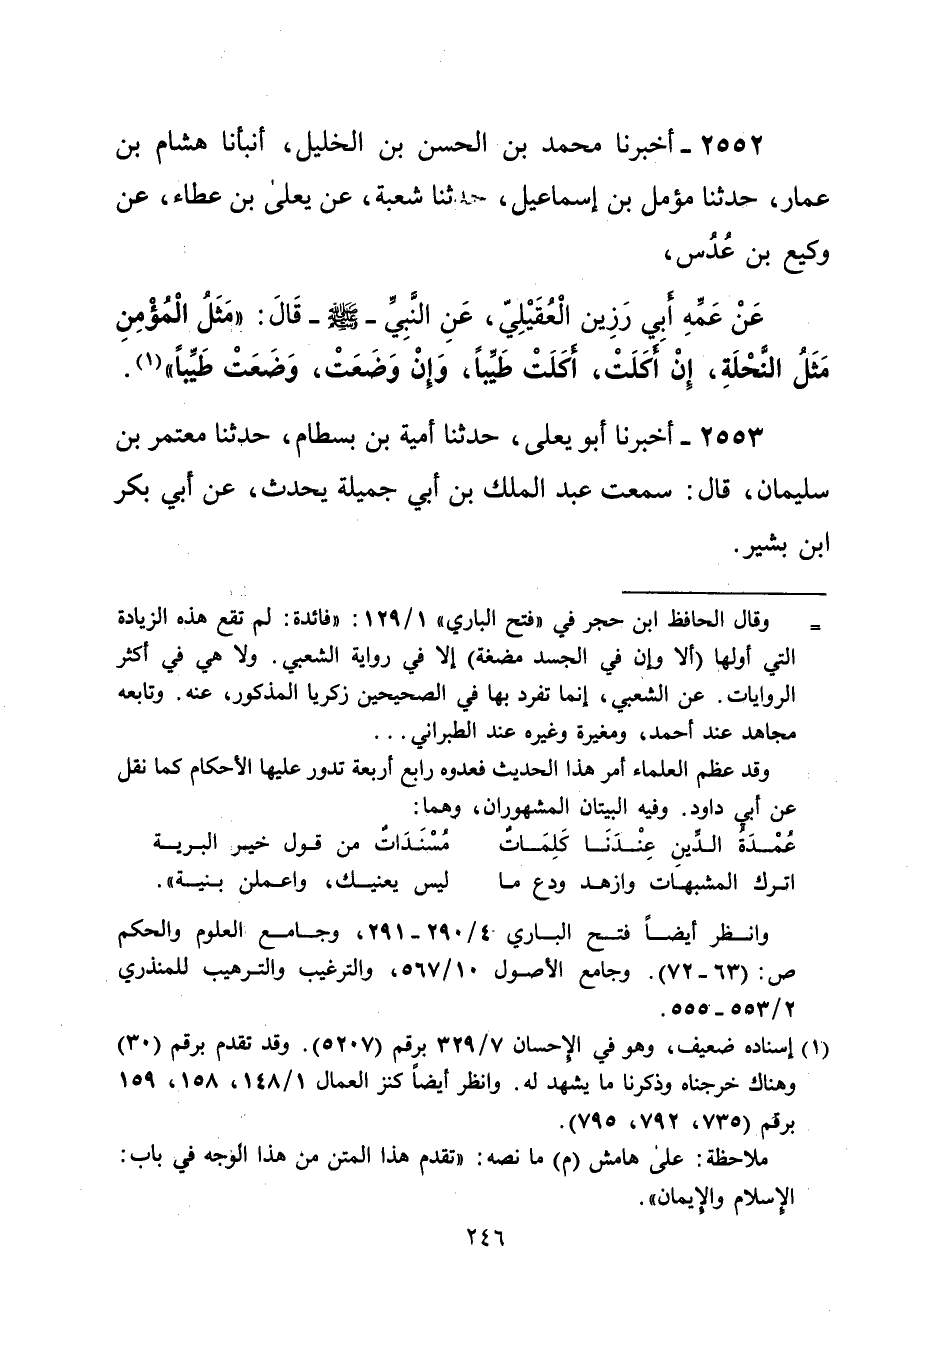 ٢٥٥٢ ـ أخبرنا محمد بن الحسن بن الخليل، أنبأنا هشام بن
عمار، حدثنا مؤمل بن إسماعيل، حدثنا شعبة، عن يعلىٰ بن عطاء، عن
وكيع بن عُدُس،
عَنْ عَمِّهِ أَبِي رَزِينِ الْعُقَيْلِيّ، عَنِ النَّبِيِّ ـ ﷺ ـ قَالَ: «مَثَلُ الْمُؤْمِنِ
مَثَلُ النَّحْلَةِ، إِنْ أَكَلَتْ، أَكَلَتْ طَيِّباً، وَإِنْ وَضَعَتْ، وَضَعَتْ طَيِّباً»(١).
٢٥٥٣ ـ أخبرنا أبو يعلى، حدثنا أمية بن بسطام، حدثنا معتمر بن
سليمان، قال: سمعت عبد الملك بن أبي جميلة يحدث، عن أبي بكر
ابن بشير.
= وقال الحافظ ابن حجر في «فتح الباري» ١٢٩/١: «فائدة: لم تقع هذه الزيادة
التي أولها (ألا وإن في الجسد مضغة) إلا في رواية الشعبي. ولا هي في أكثر
الروايات. عن الشعبي، إنما تفرد بها في الصحيحين زكريا المذكور، عنه. وتابعه
مجاهد عند أحمد، ومغيرة وغيره عند الطبراني...
وقد عظم العلماء أمر هذا الحديث فعدوه رابع أربعة تدور عليها الأحكام كما نقل
عن أبي داود. وفيه البيتان المشهوران، وهما:
عُمْـدَةُ الـدِّينِ عِنْـدَنَـا كَلِمَـاتٌ مُسْنَدَاتٌ من قـول خيـر البـريـة
اتـرك المشبهـات وازهـد ودع مـا ليس يعنيـك، واعـملن بـنيـة».
وانـظر أيضـاً فتـح البـاري ٢٩٠/٤ ـ ٢٩١، وجـامـع العلوم والحكم
ص: (٦٣ ـ ٧٢). وجامع الأصول ٥٦٧/١٠، والترغيب والترهيب للمنذري
٥٥٣/٢ ـ ٥٥٥.
(١) إسناده ضعيف، وهو في الإحسان ٣٢٩/٧ برقم (٥٢٠٧). وقد تقدم برقم (٣٠)
وهناك خرجناه وذكرنا ما يشهد له. وانظر أيضاً كنز العمال ١٤٨/١، ١٥٨، ١٥٩
برقم (٧٣٥، ٧٩٢، ٧٩٥).
ملاحظة: علىٰ هامش (م) ما نصه: «تقدم هذا المتن من هذا الوجه في باب:
الإسلام والإيمان».
٢٤٦